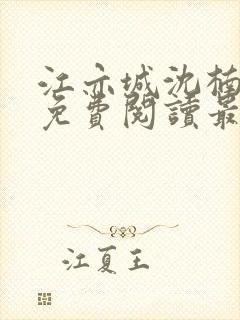 江亦城沈楠
免費閱讀最
江夏王